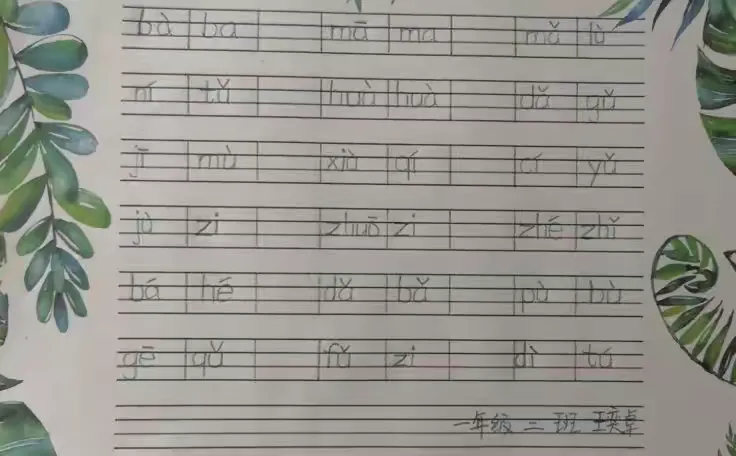 bà ba mā ma mǎ lù
ní tǔ huà huà dǎ gǔ
jī mù xià qí cí yǔ
jù zi zhuō zi zhé zhǐ
bá hé dǎ bǎ pù bù
gē qǔ fǔ zi dì tú
一年级 二 班 王奕卓